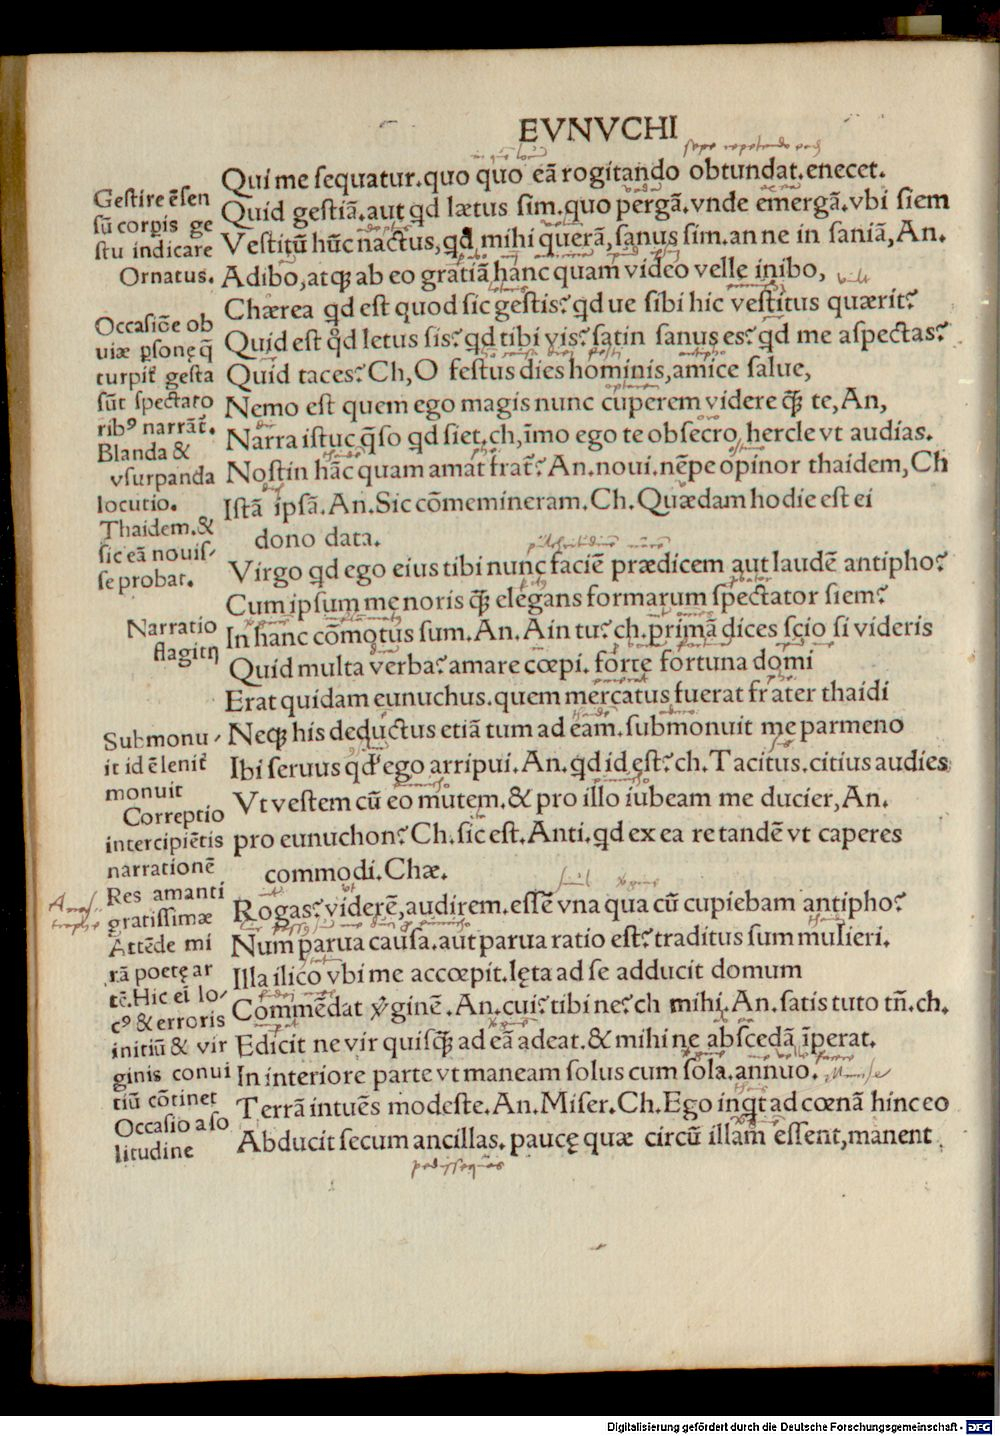 EVNVCHI
Qui me sequatur.quo quo eā rogitando obtundat.enecet.
Quid gestiā.aut qd lætus sim.quo pergā.vnde emergā.vbi siem
Vestitū hūc nactus,qd mihi querā,sanus sim.an ne in saniā,An.
Adibo,atqꝫ ab eo gratiā hanc quam video velle inibo,
Chærea qd est quod sic gestis? qd ue sibi hic vestitus quærit?
Quid est qd letus sis? qd tibi vis? satin sanus es? qd me aspectas?
Quid taces? Ch,O festus dies hominis,amice salue,
Nemo est quem ego magis nunc cuperem videre qꝫ̄ te,An,
Narra istuc q̄so qd siet.ch,īmo ego te obsecro hercle vt audias.
Nostin hāc quam amat frat̄? An.noui.nēpe opinor thaidem,Ch
Istā ipsā.An.Sic cōmemineram.Ch.Quædam hodie est ei
dono data.
Virgo qd ego eius tibi nunc faciē prædicem aut laudē antipho?
Cum ipsum me noris qꝫ̄ elegans formarum spectator siem?
In hanc cōmotus sum.An.Ain tu? ch.primā dices scio si videris
Quid multa verba? amare cœpi.forte fortuna domi
Erat quidam eunuchus.quem mercatus fuerat frater thaidi
Neqꝫ his deductus etiā tum ad eam.submonuit me parmeno
Ibi seruus qd ego arripui.An.qd id est? ch.Tacitus.citius audies
Vt vestem cū eo mutem.& pro illo iubeam me ducier,An.
pro eunuchon? Ch.sic est.Anti.qd ex ea re tandē vt caperes
commodi.Chæ.
Rogas? viderē,audirem.essē vna qua cū cupiebam antipho?
Num parua causa.aut parua ratio est? traditus sum mulieri.
Illa ilico vbi me accœpit.lęta ad se adducit domum
Commēdat v̄ginē.An.cui? tibi ne? ch mihi.An.satis tuto tn̄.ch.
Edicit ne vir quisqꝫ̄ ad eā adeat.& mihi ne abscedā īperat.
In interiore parte vt maneam solus cum sola.annuo.
Terrā intuēs modeste.An.Miser.Ch.Ego inqt ad cœnā hinc eo
Abducit secum ancillas.paucę quæ circū illam essent,manent
pedissequas
Gestire ē sen
sū corpis ge
stu indicare
Ornatus.
Occasiōe ob
uiæ psonę q̄
turpit̄ gesta
sūt spectato
ribꝰ narrāt̄.
Blanda &
vsurpanda
locutio.
Thaidem.&
sic eā nouis-
se probat.
Narratio
flagitii
Submonu-
it id ē lenit̄
monuit
Correptio
intercipiētis
narrationē
Res amanti
gratissimæ
Attēde mi
rā poetę ar
tē.Hic ei lo-
cꝰ & erroris
initiū & vir
ginis conui
tiū cōtinet
Occasio a so
litudine
Digitalisierung gefördert durch die Deutsche Forschungsgemeinschaft - DFG